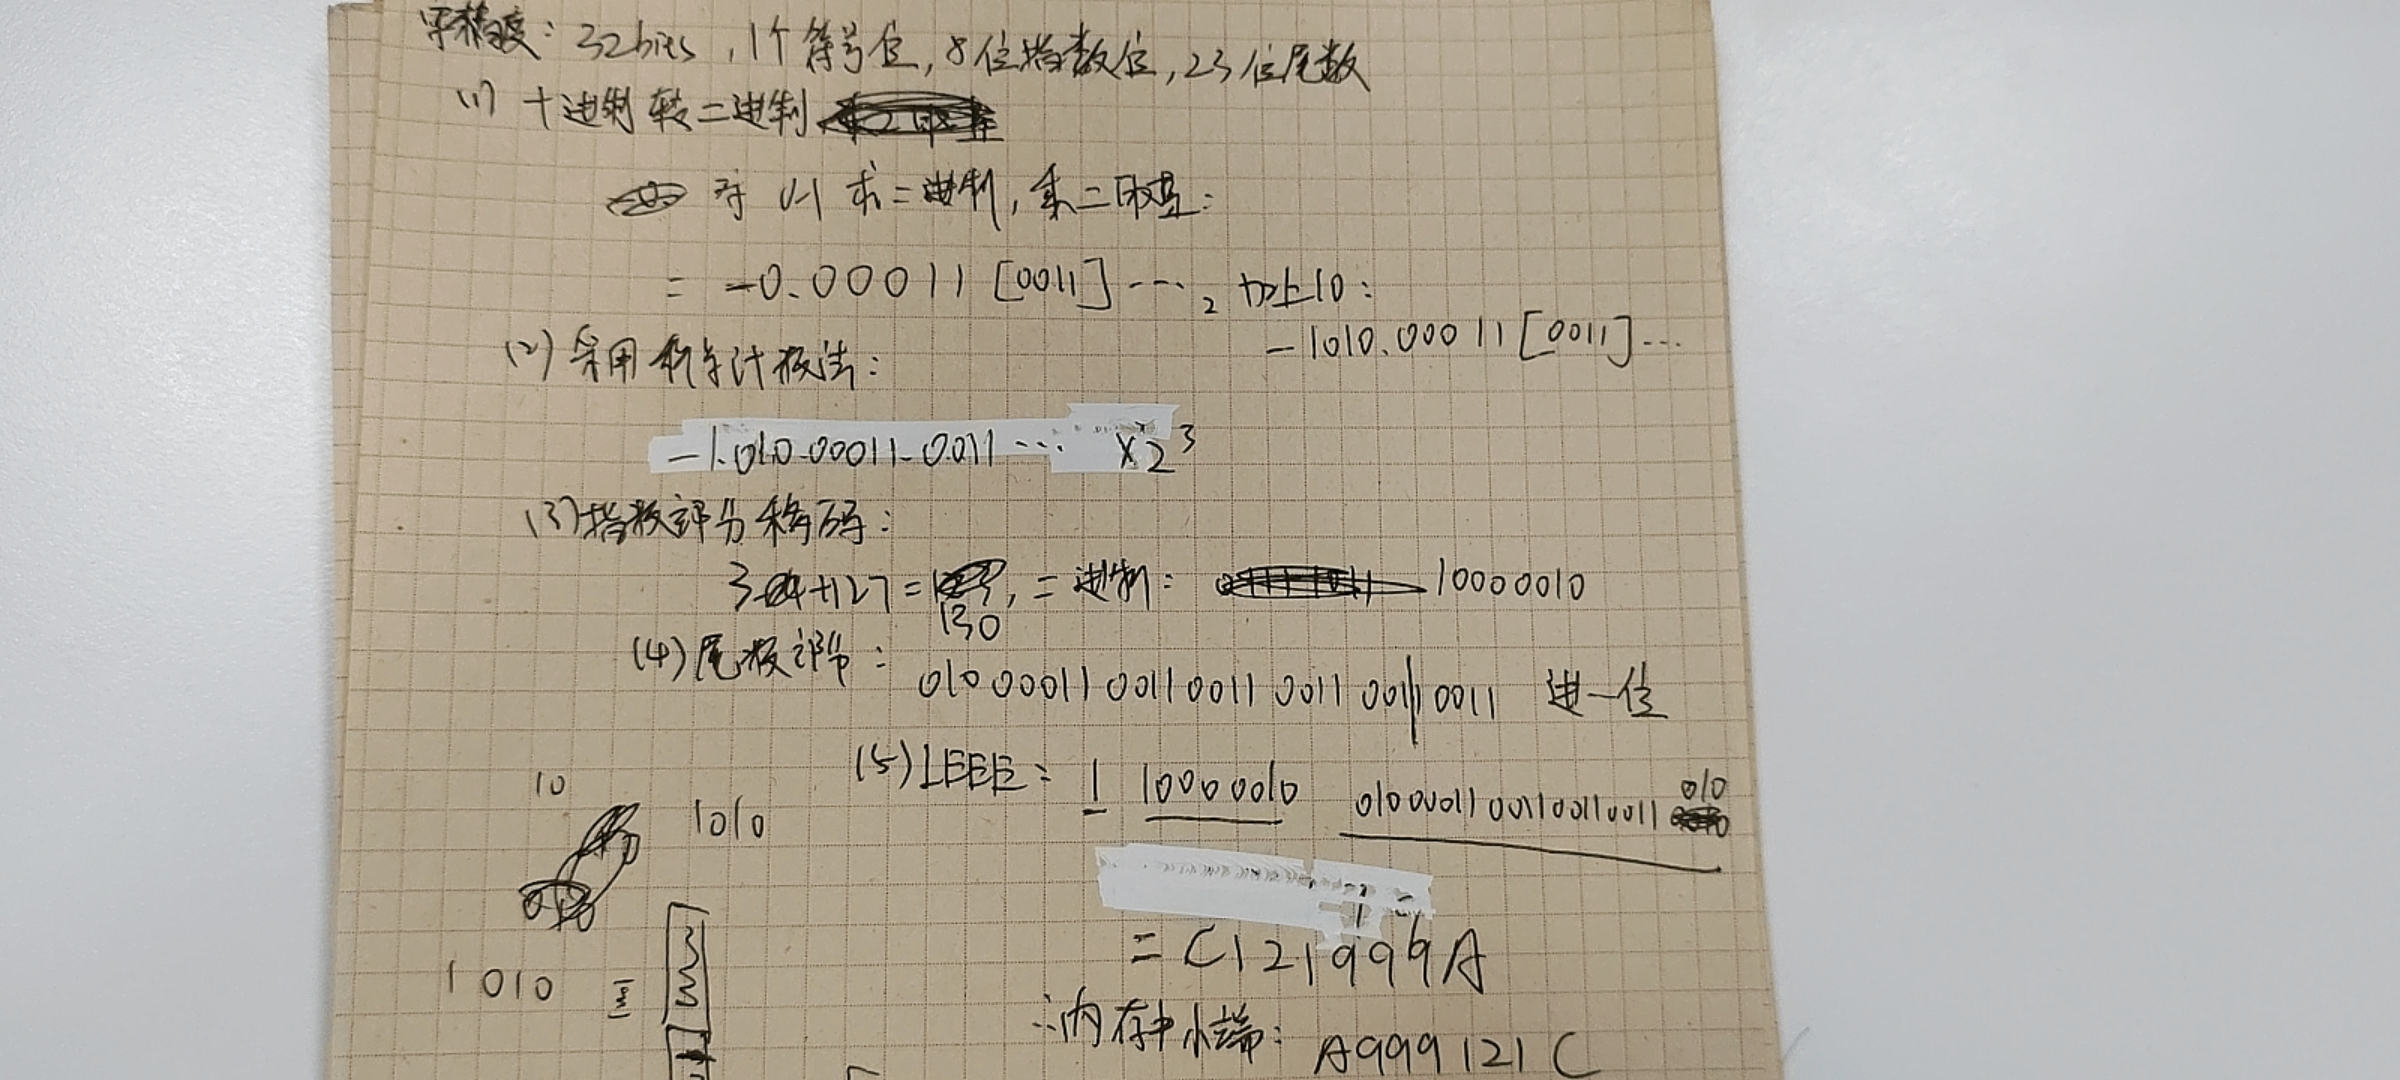 单精度: 32bits, 1个符号位, 8位指数位, 23位尾数
(1) 十进制转二进制
对 0.1 求二进制, 乘二取整:
= -0.00011 [0011] ···₂ 加上10:
-1010.00011 [0011]...
(2) 采用科学计数法:
-1.010 00011 0011 ··· ×2³
(3) 指数部分移码:
3+127 = 130, 二进制: 10000010
(4) 尾数部分:
010 00011 0011 0011 0011 0011 0011 进一位
(5) IEEE: 1 10000010 01000011001100110011 010
10
1010
= C121999A
1010
∴内存中小端: A999121C